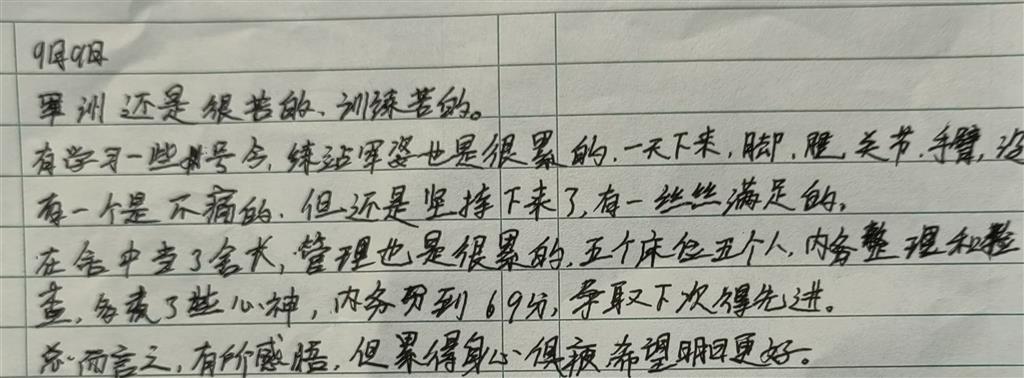 9月9日
军训还是很苦的、训练苦的。
有学习一些号令,练站军姿也是很累的,一天下来,脚、腿、关节、手臂,没
有一个是不痛的,但还是坚持下来了,有一丝丝满足的。
在舍中当了舍长,管理也是很累的,五个床位五个人,内务整理和检
查,多费了些心神,内务到69分,争取下次得先进。
总而言之,有所感悟,但累得身心俱疲,希望明日更好。